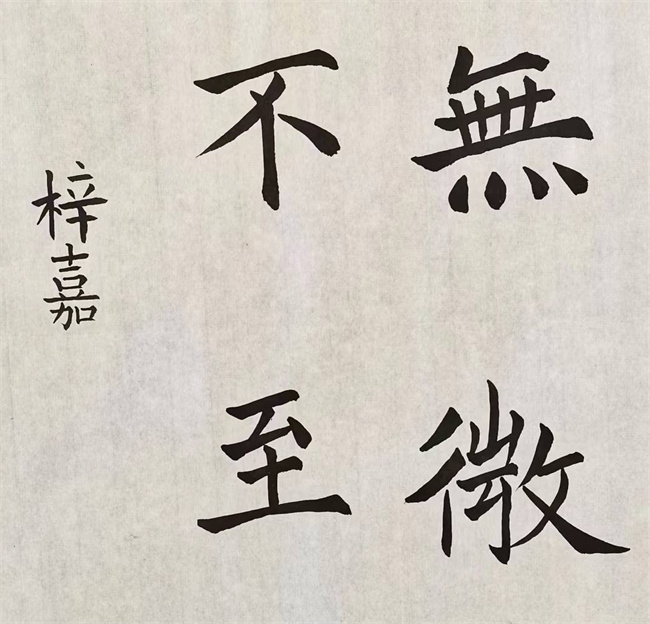 無微
不至
梓嘉